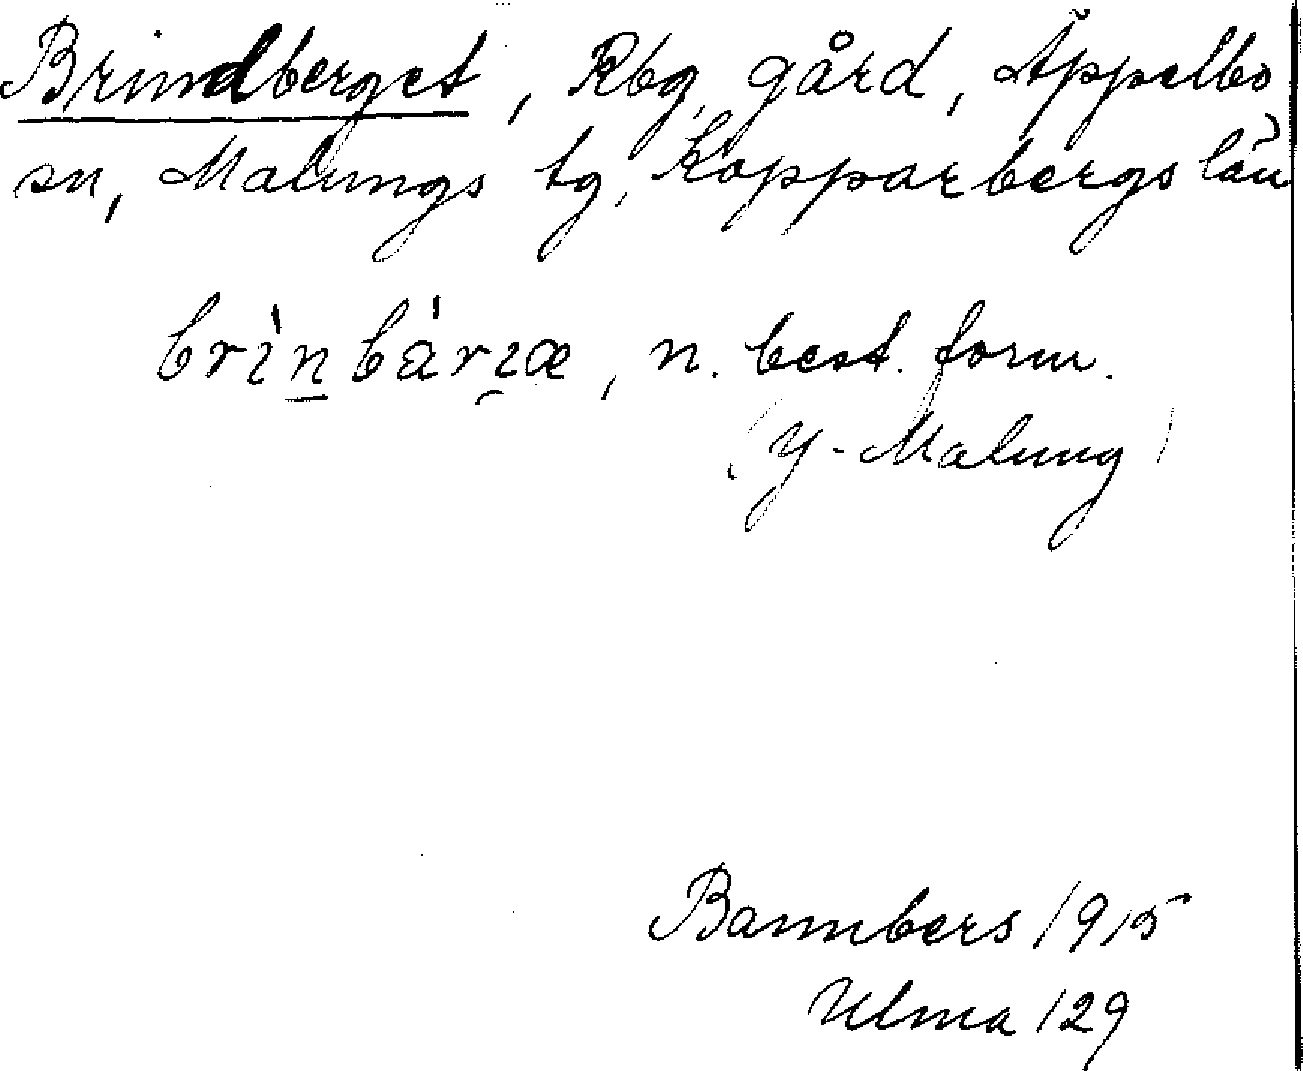 Brindberget, Rbg, gård, Äppelbo
sn, Malungs tg, Kopparbergs län
brìnbárıæ, n. best. form.
(Y-Malung)
Bannbers 1915
Ulma 129